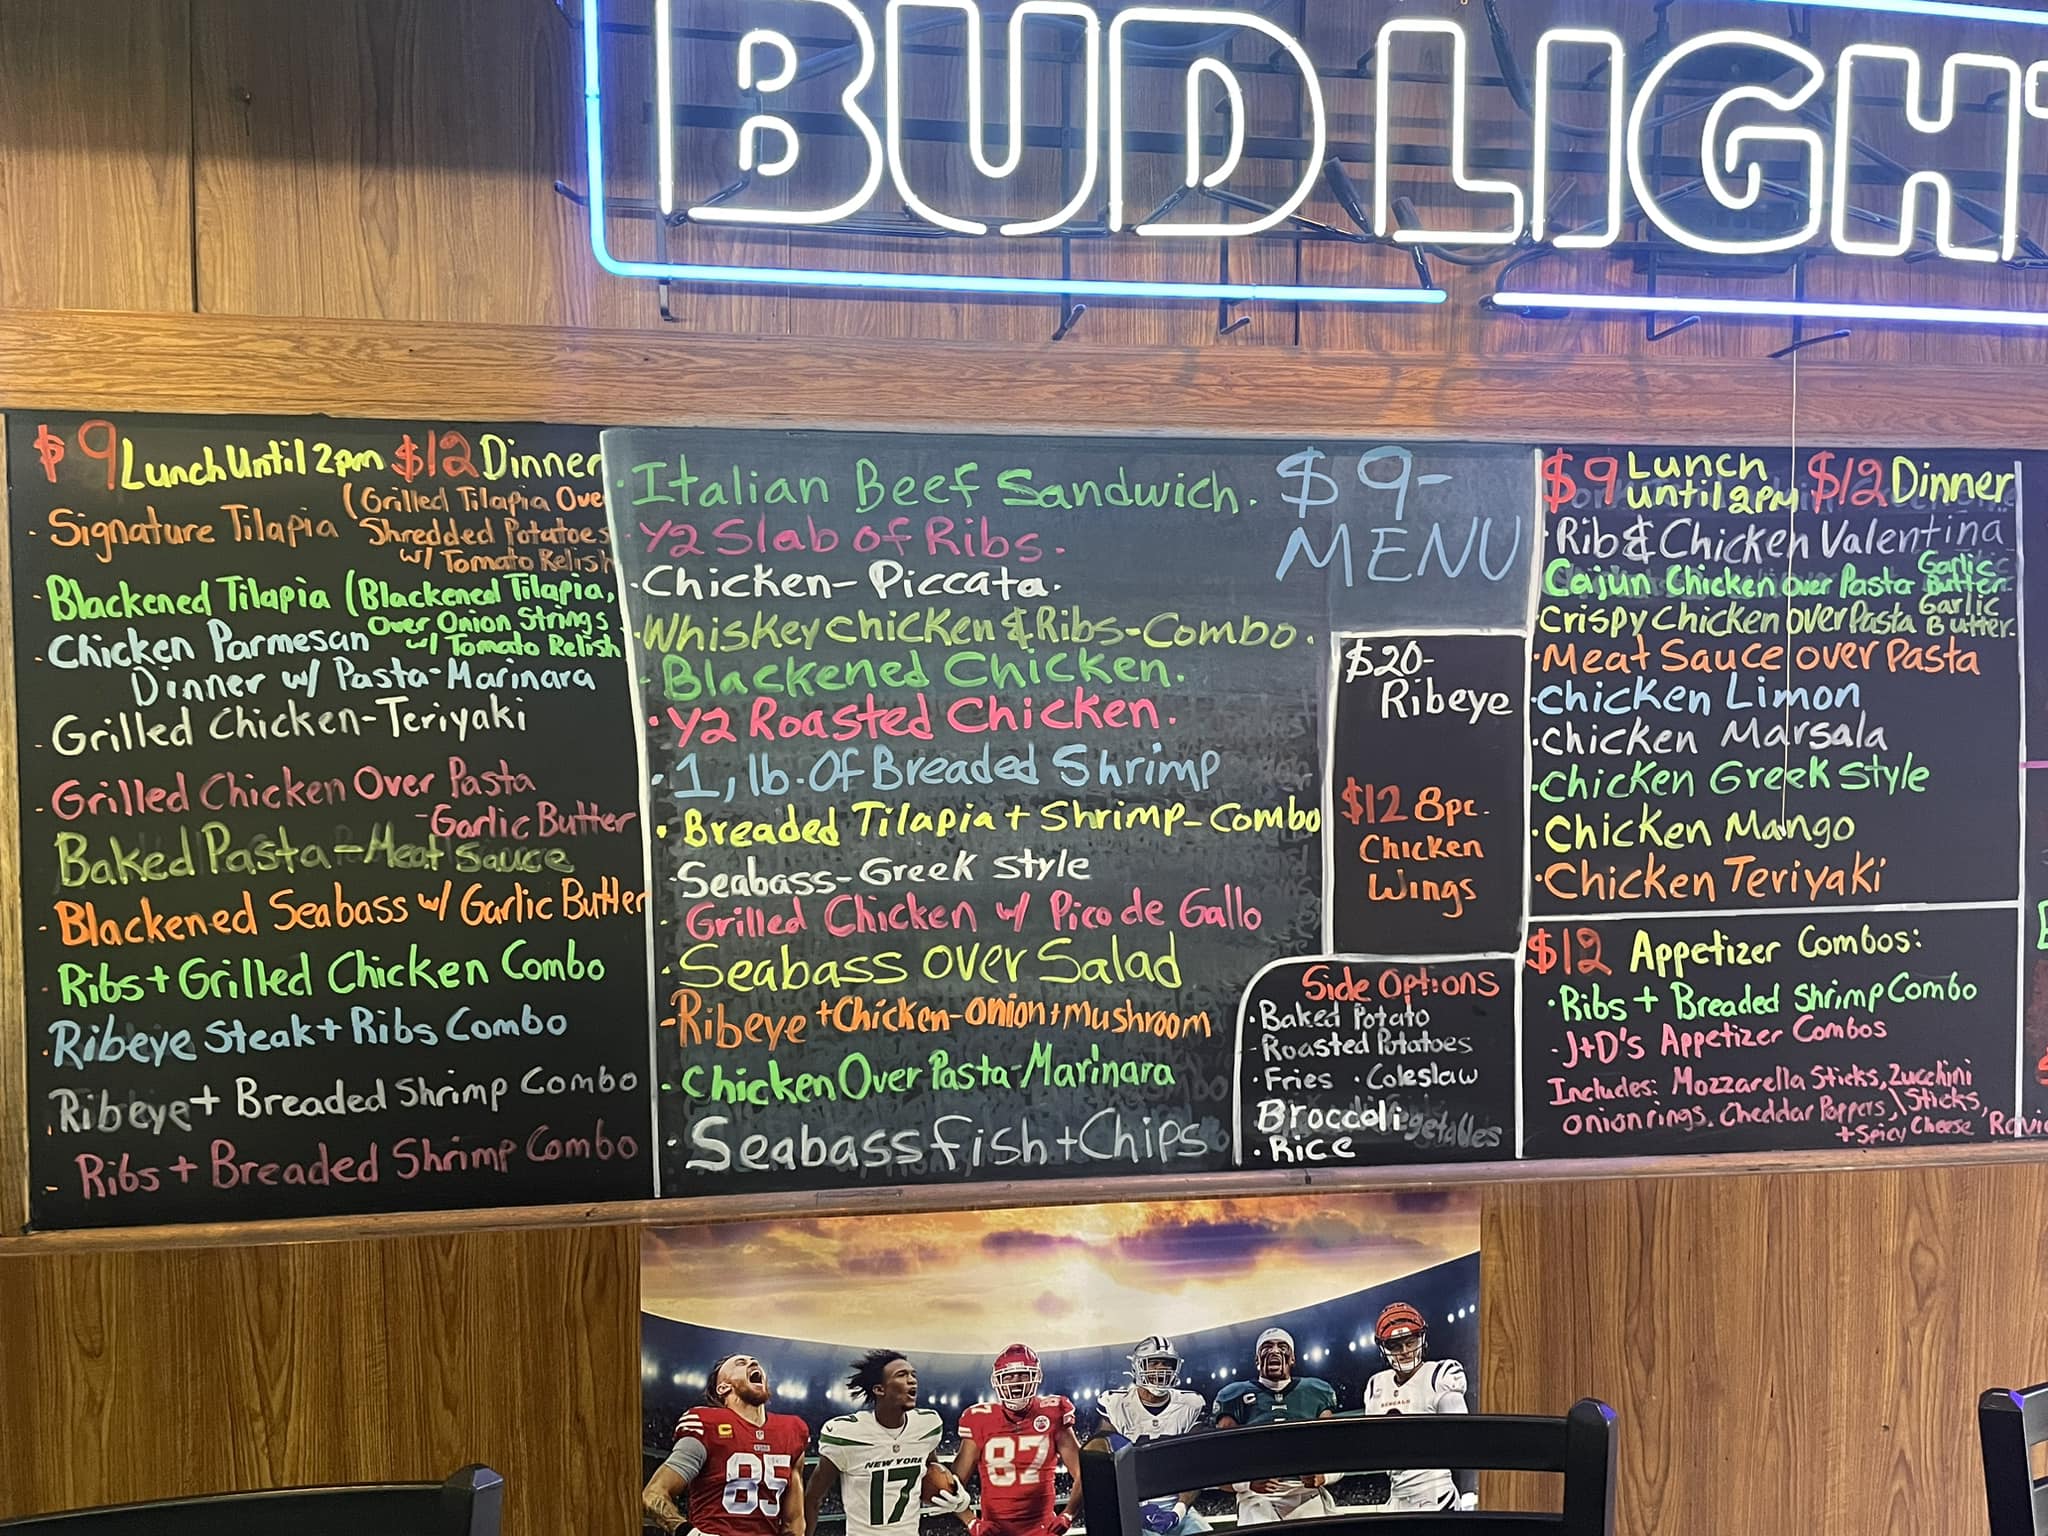 BUD LIGHT
$9 Lunch Until 2pm $12 Dinner
- Signature Tilapia (Grilled Tilapia Over
Shredded Potatoes
w/ Tomato Relish
- Blackened Tilapia (Blackened Tilapia,
Over Onion Strings
w/ Tomato Relish
- Chicken Parmesan
Dinner w/ Pasta-Marinara
- Grilled Chicken-Teriyaki
- Grilled Chicken Over Pasta
-Garlic Butter
Baked Pasta-Meat Sauce
- Blackened Seabass w/ Garlic Butter
- Ribs+Grilled Chicken Combo
- Ribeye Steak+Ribs Combo
. Ribeye+ Breaded Shrimp Combo
- Ribs + Breaded Shrimp Combo
$9-
MENU
· Italian Beef Sandwich.
· 1/2 Slab of Ribs.
· Chicken-Piccata.
· Whiskey Chicken & Ribs-Combo.
· Blackened Chicken.
· 1/2 Roasted Chicken.
· 1, lb. Of Breaded Shrimp
· Breaded Tilapia + Shrimp-Combo
· Seabass-Greek Style
· Grilled Chicken w/ Pico de Gallo
· Seabass over Salad
- Ribeye +Chicken-onion+mushroom
· Chicken Over Pasta-Marinara
· Seabass Fish+Chips
$20-
Ribeye
$12 8pc.
Chicken
Wings
Side Options
· Baked Potato
- Roasted Potatoes
· Fries · Coleslaw
Broccoli
· Rice
$9 Lunch
until 2pm $12 Dinner
· Rib & Chicken Valentina
Cajun Chicken over Pasta Garlic
Butter
· Crispy Chicken over Pasta Garlic
Butter.
· Meat Sauce over Pasta
· Chicken Limon
· Chicken Marsala
· Chicken Greek Style
· Chicken Mango
· Chicken Teriyaki
$12 Appetizer Combos:
· Ribs + Breaded Shrimp Combo
- J+D's Appetizer Combos
Includes: Mozzarella Sticks, Zucchini
Sticks,
onion rings, Cheddar Poppers,
+Spicy Cheese
85
NEW YORK
17
87
87
BENGALS